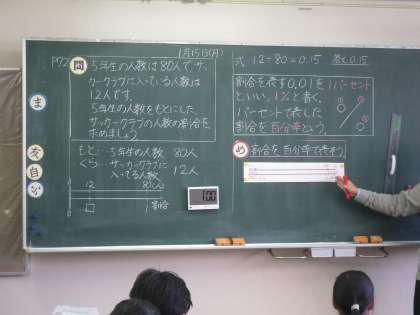 1月15日(月)
P92
問
5年生の人数は80人で、サッ
カークラブに入っている人数は
12人です。
5年生の人数をもとにした
サッカークラブの人数の割合を
求めましょう
もと…5年生の人数 80人
くら…サッカークラブに
入ってる人数 12人
0 12 80(人)
0 □ 1 割合
100
ま
自
式 12÷80=0.15 答え0.15
割合を表す0.01を1パーセント
といい、1%と書く。
パーセントで表した
割合を百分率という。
め 割合を百分率で表そう